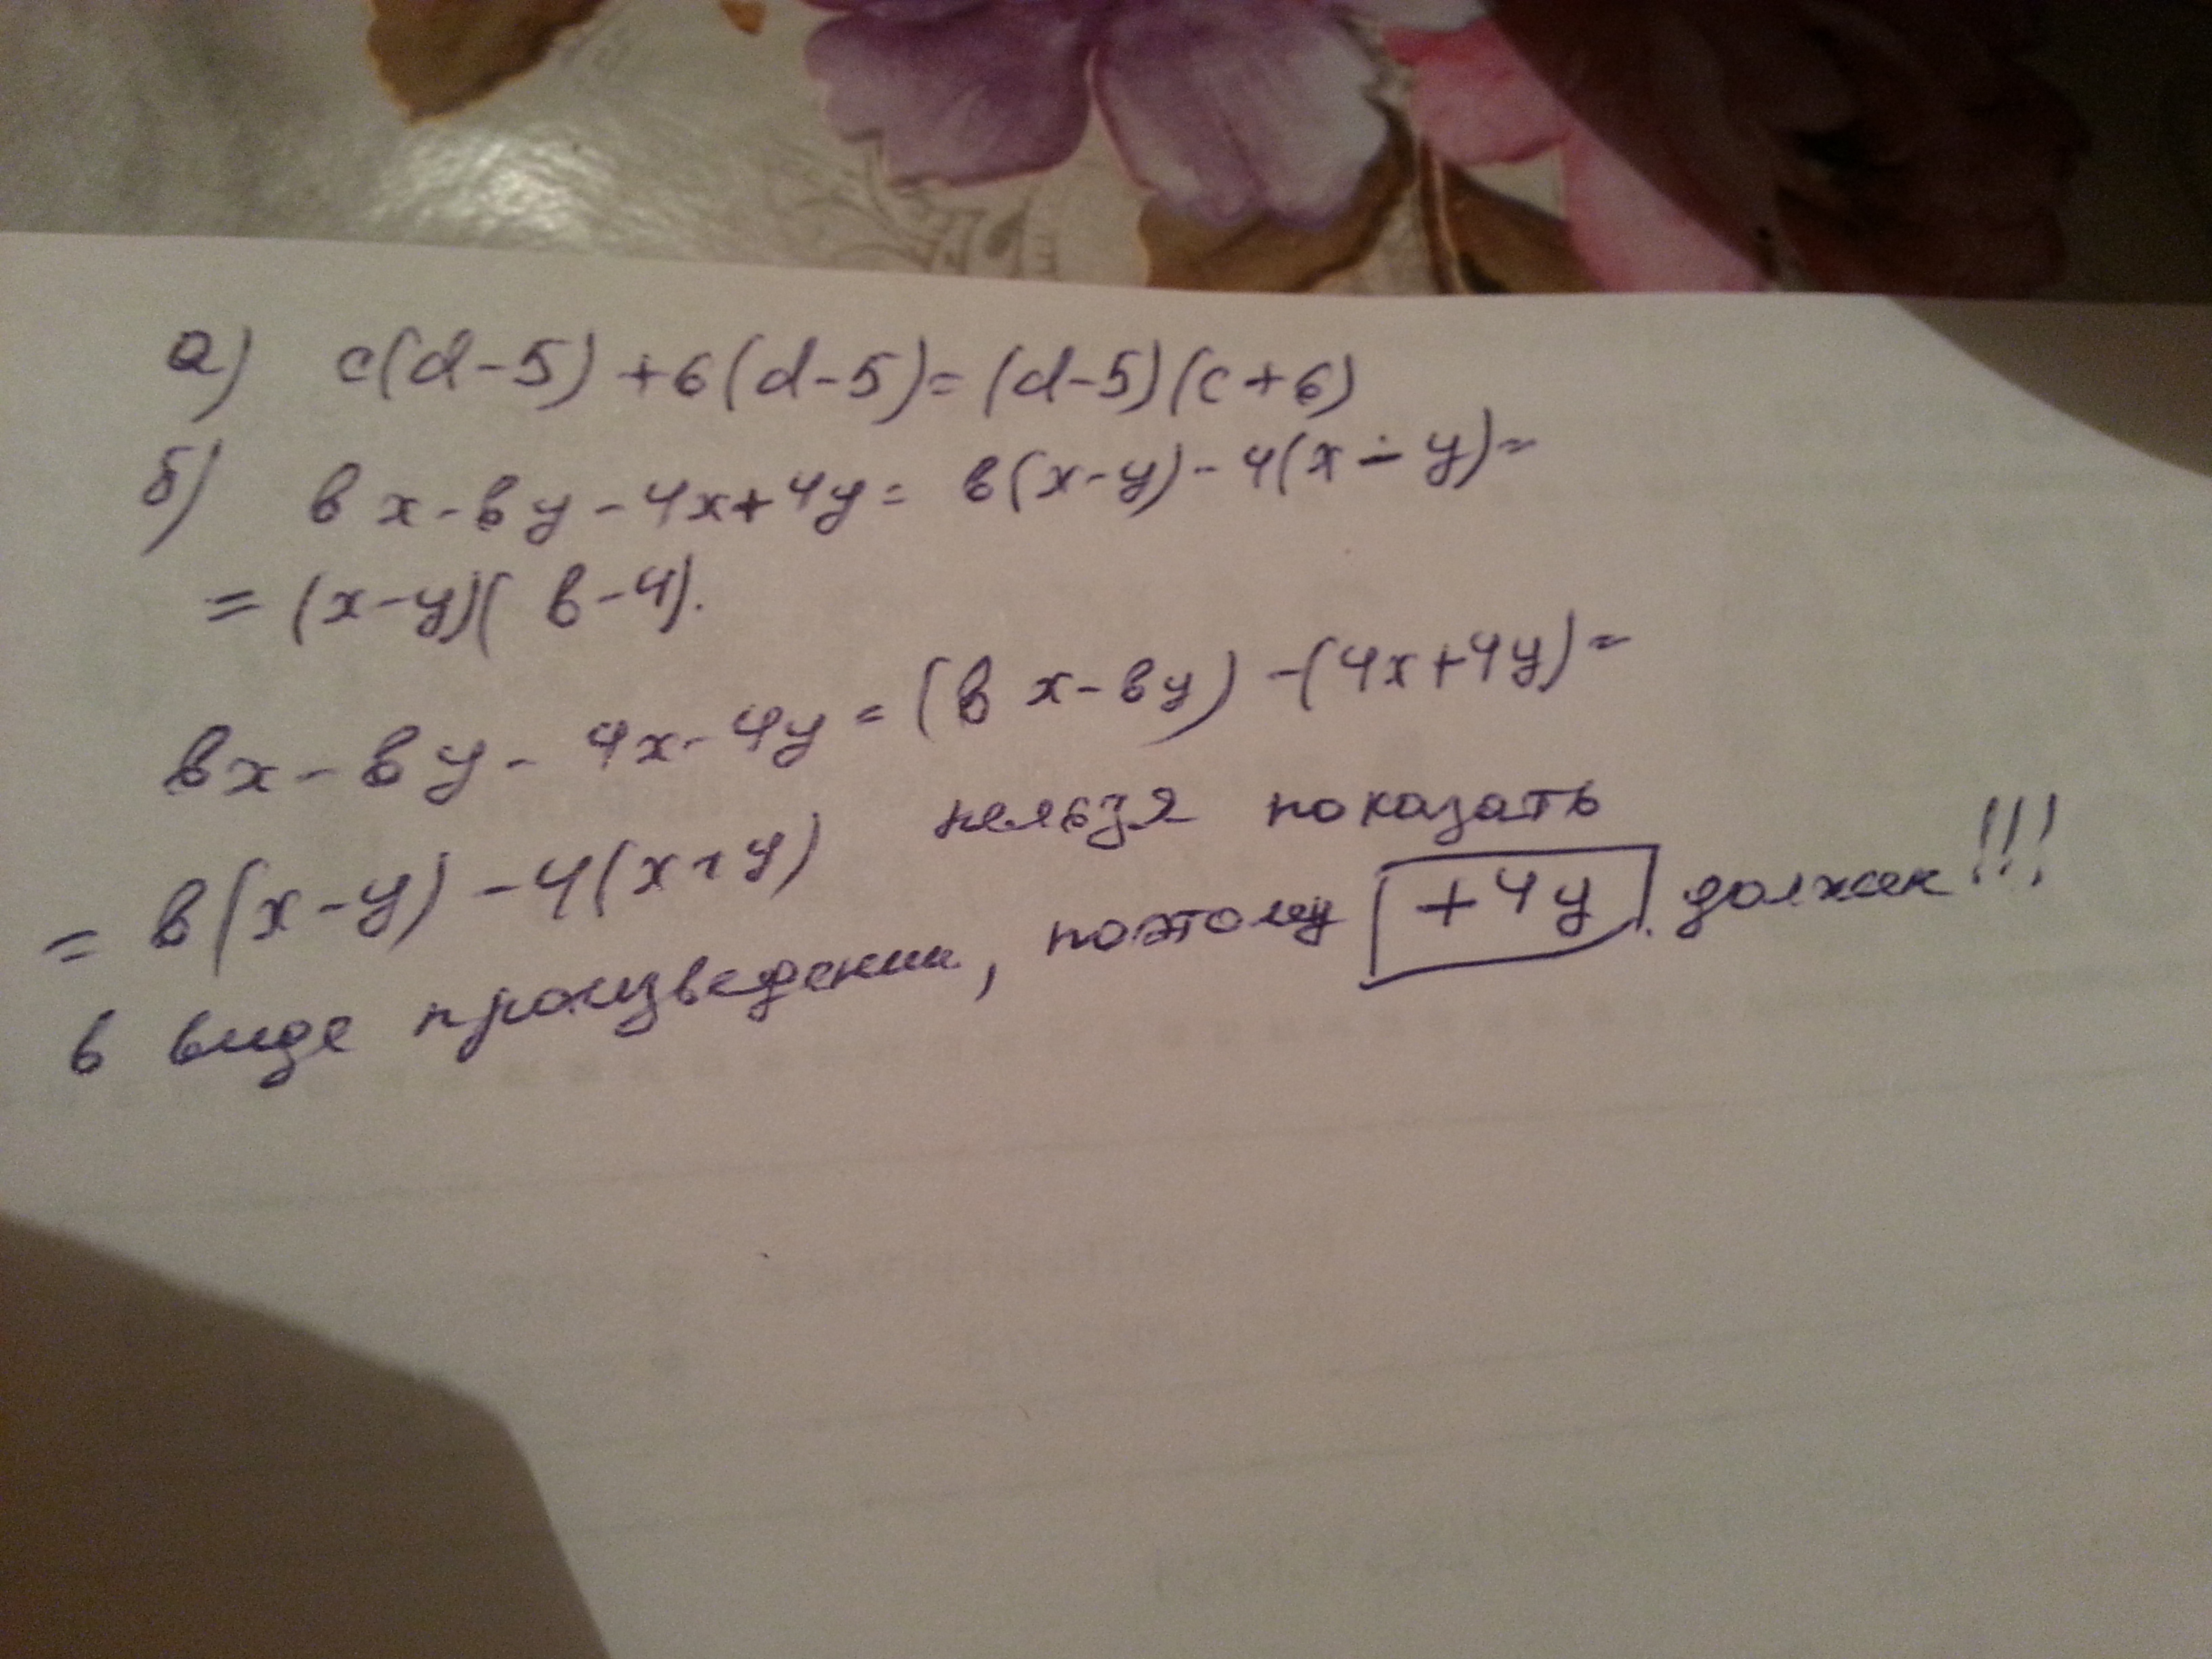 а) c(d-5)+6(d-5)=(d-5)(c+6)
б) вx-вy-4x+4y= в(x-y)-4(x-y)=
=(x-y)(в-4).
вx-вy-4x-4y=(вx-вy)-(4x+4y)=
=в(x-y)-4(x+y) нельзя показать
в виде произведении, поэтому +4y должен!!!